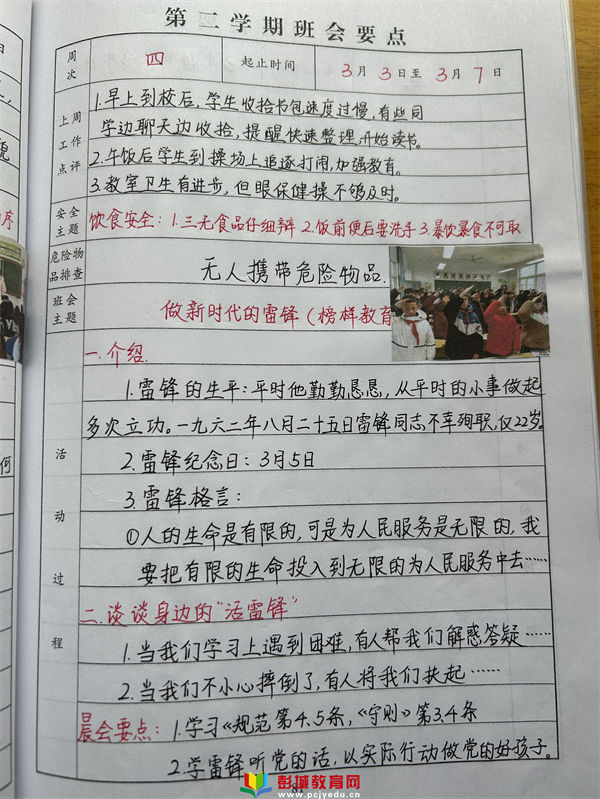 第二学期班会要点
周次 四 起止时间 3月3日至3月7日
上周工作点评
1.早上到校后,学生收拾书包速度过慢,有些同
学边聊天边收拾,提醒快速整理,开始读书。
2.午饭后学生到操场上追逐打闹,加强教育。
3.教室卫生有进步,但眼保健操不够及时。
安全主题 饮食安全:1.三无食品仔细辩 2.饭前便后要洗手 3.暴饮暴食不可取
危险物品排查 无人携带危险物品.
班会主题 做新时代的雷锋(榜样教育
活动过程
一.介绍.
1.雷锋的生平:平时他勤勤恳恳,从平时的小事做起
多次立功。一九六二年八月二十五日雷锋同志不幸殉职,仅22岁。
2.雷锋纪念日:3月5日
3.雷锋格言:
①人的生命是有限的,可是为人民服务是无限的,我
要把有限的生命投入到无限的为人民服务中去……
二.谈谈身边的"活雷锋"
1.当我们学习上遇到困难,有人帮我们解惑答疑……
2.当我们不小心摔倒了,有人将我们扶起……
晨会要点:1.学习《规范第4.5条,《守则》第3.4条
2.学雷锋听党的话,以实际行动做党的好孩子。
序
何
彭城教育网
www.pcjyedu.cn